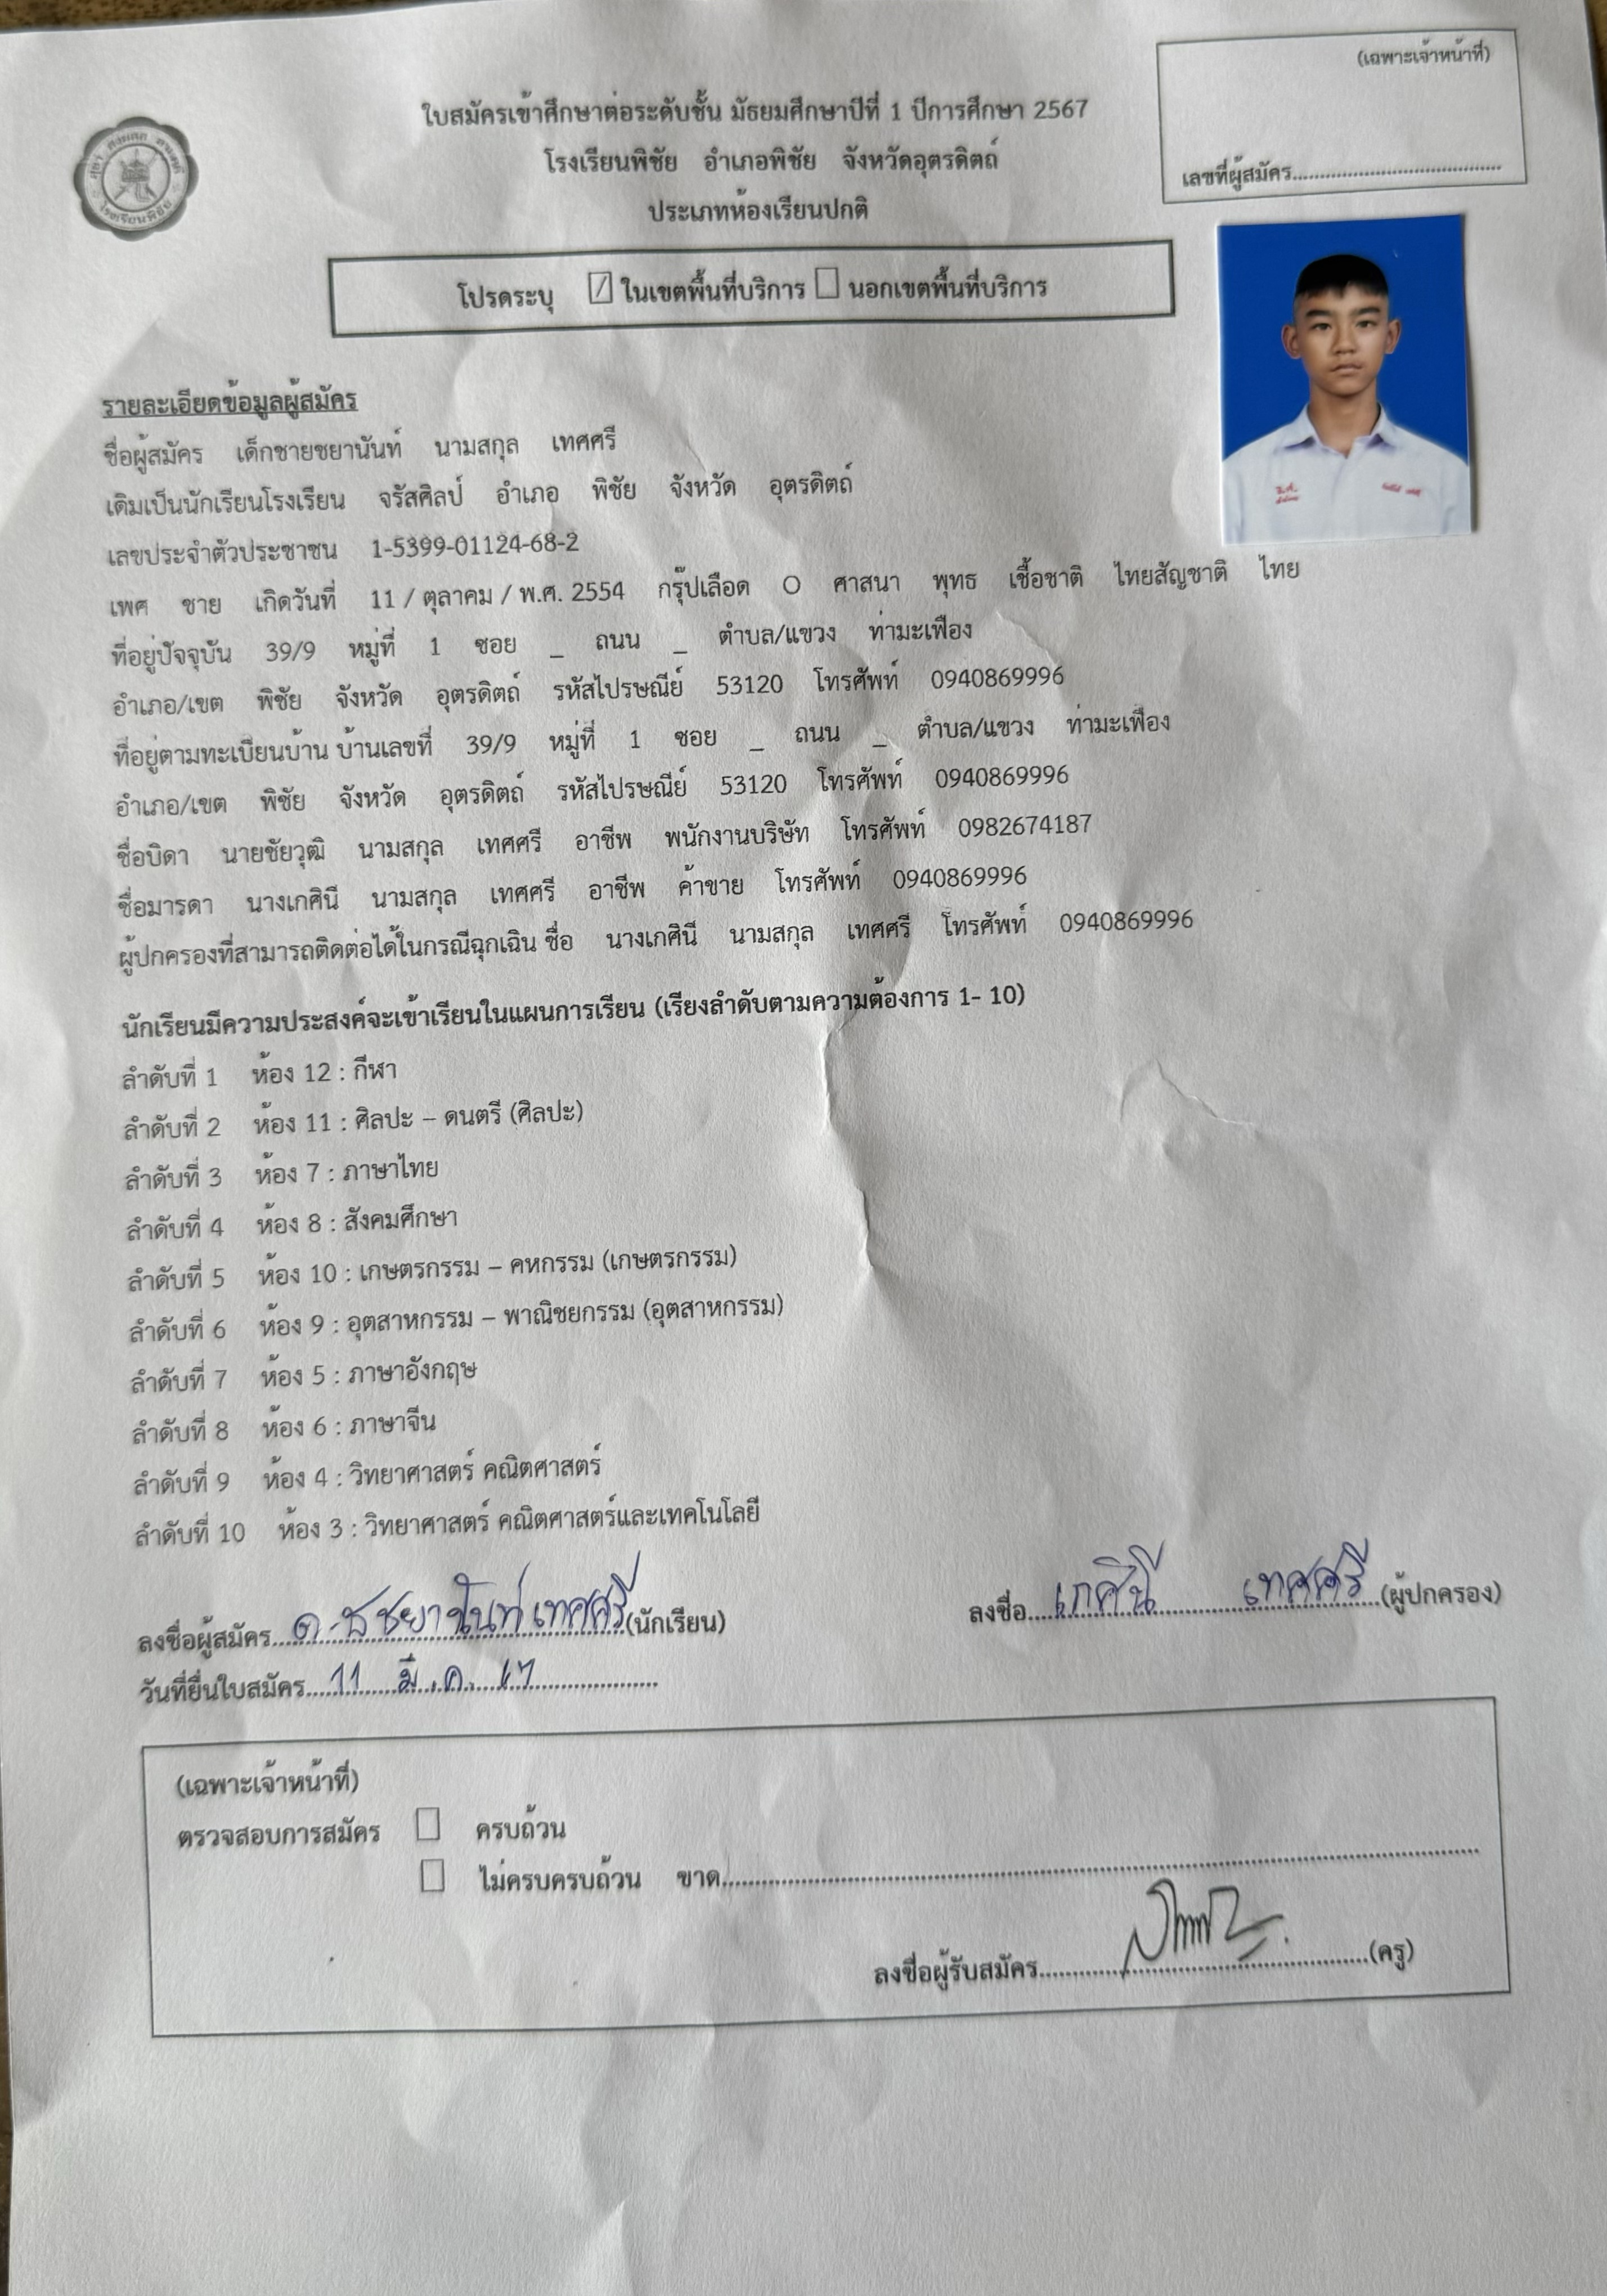 (เฉพาะเจ้าหน้าที่)
เลขที่ผู้สมัคร......................................
ใบสมัครเข้าศึกษาต่อระดับชั้น มัธยมศึกษาปีที่ 1 ปีการศึกษา 2567
โรงเรียนพิชัย อำเภอพิชัย จังหวัดอุตรดิตถ์
ประเภทห้องเรียนปกติ
โรงเรียนพิชัย
โปรดระบุ ☑ ในเขตพื้นที่บริการ ☐ นอกเขตพื้นที่บริการ
รายละเอียดข้อมูลผู้สมัคร
ชื่อผู้สมัคร เด็กชายชยานันท์ นามสกุล เทศศรี
เดิมเป็นนักเรียนโรงเรียน จรัสศิลป์ อำเภอ พิชัย จังหวัด อุตรดิตถ์
เลขประจำตัวประชาชน 1-5399-01124-68-2
เพศ ชาย เกิดวันที่ 11 / ตุลาคม / พ.ศ. 2554 กรุ๊ปเลือด O ศาสนา พุทธ เชื้อชาติ ไทยสัญชาติ ไทย
ที่อยู่ปัจจุบัน 39/9 หมู่ที่ 1 ซอย _ ถนน _ ตำบล/แขวง ท่ามะเฟือง
อำเภอ/เขต พิชัย จังหวัด อุตรดิตถ์ รหัสไปรษณีย์ 53120 โทรศัพท์ 0940869996
ที่อยู่ตามทะเบียนบ้าน บ้านเลขที่ 39/9 หมู่ที่ 1 ซอย _ ถนน _ ตำบล/แขวง ท่ามะเฟือง
อำเภอ/เขต พิชัย จังหวัด อุตรดิตถ์ รหัสไปรษณีย์ 53120 โทรศัพท์ 0940869996
ชื่อบิดา นายชัยวุฒิ นามสกุล เทศศรี อาชีพ พนักงานบริษัท โทรศัพท์ 0982674187
ชื่อมารดา นางเกศินี นามสกุล เทศศรี อาชีพ ค้าขาย โทรศัพท์ 0940869996
ผู้ปกครองที่สามารถติดต่อได้ในกรณีฉุกเฉิน ชื่อ นางเกศินี นามสกุล เทศศรี โทรศัพท์ 0940869996
นักเรียนมีความประสงค์จะเข้าเรียนในแผนการเรียน (เรียงลำดับตามความต้องการ 1- 10)
ลำดับที่ 1 ห้อง 12 : กีฬา
ลำดับที่ 2 ห้อง 11 : ศิลปะ – ดนตรี (ศิลปะ)
ลำดับที่ 3 ห้อง 7 : ภาษาไทย
ลำดับที่ 4 ห้อง 8 : สังคมศึกษา
ลำดับที่ 5 ห้อง 10 : เกษตรกรรม – คหกรรม (เกษตรกรรม)
ลำดับที่ 6 ห้อง 9 : อุตสาหกรรม – พาณิชยกรรม (อุตสาหกรรม)
ลำดับที่ 7 ห้อง 5 : ภาษาอังกฤษ
ลำดับที่ 8 ห้อง 6 : ภาษาจีน
ลำดับที่ 9 ห้อง 4 : วิทยาศาสตร์ คณิตศาสตร์
ลำดับที่ 10 ห้อง 3 : วิทยาศาสตร์ คณิตศาสตร์และเทคโนโลยี
ลงชื่อผู้สมัคร ด.ช ชยานันท์ เทศศรี (นักเรียน) ลงชื่อ เกศินี เทศศรี (ผู้ปกครอง)
วันที่ยื่นใบสมัคร 11 มี.ค. 67
(เฉพาะเจ้าหน้าที่)
ตรวจสอบการสมัคร ☐ ครบถ้วน
☐ ไม่ครบครบถ้วน ขาด......................................
ลงชื่อผู้รับสมัคร......................................(ครู)